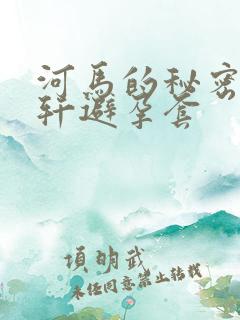 河马的秘密
轩避孕套
項明武
未经同意禁止转载